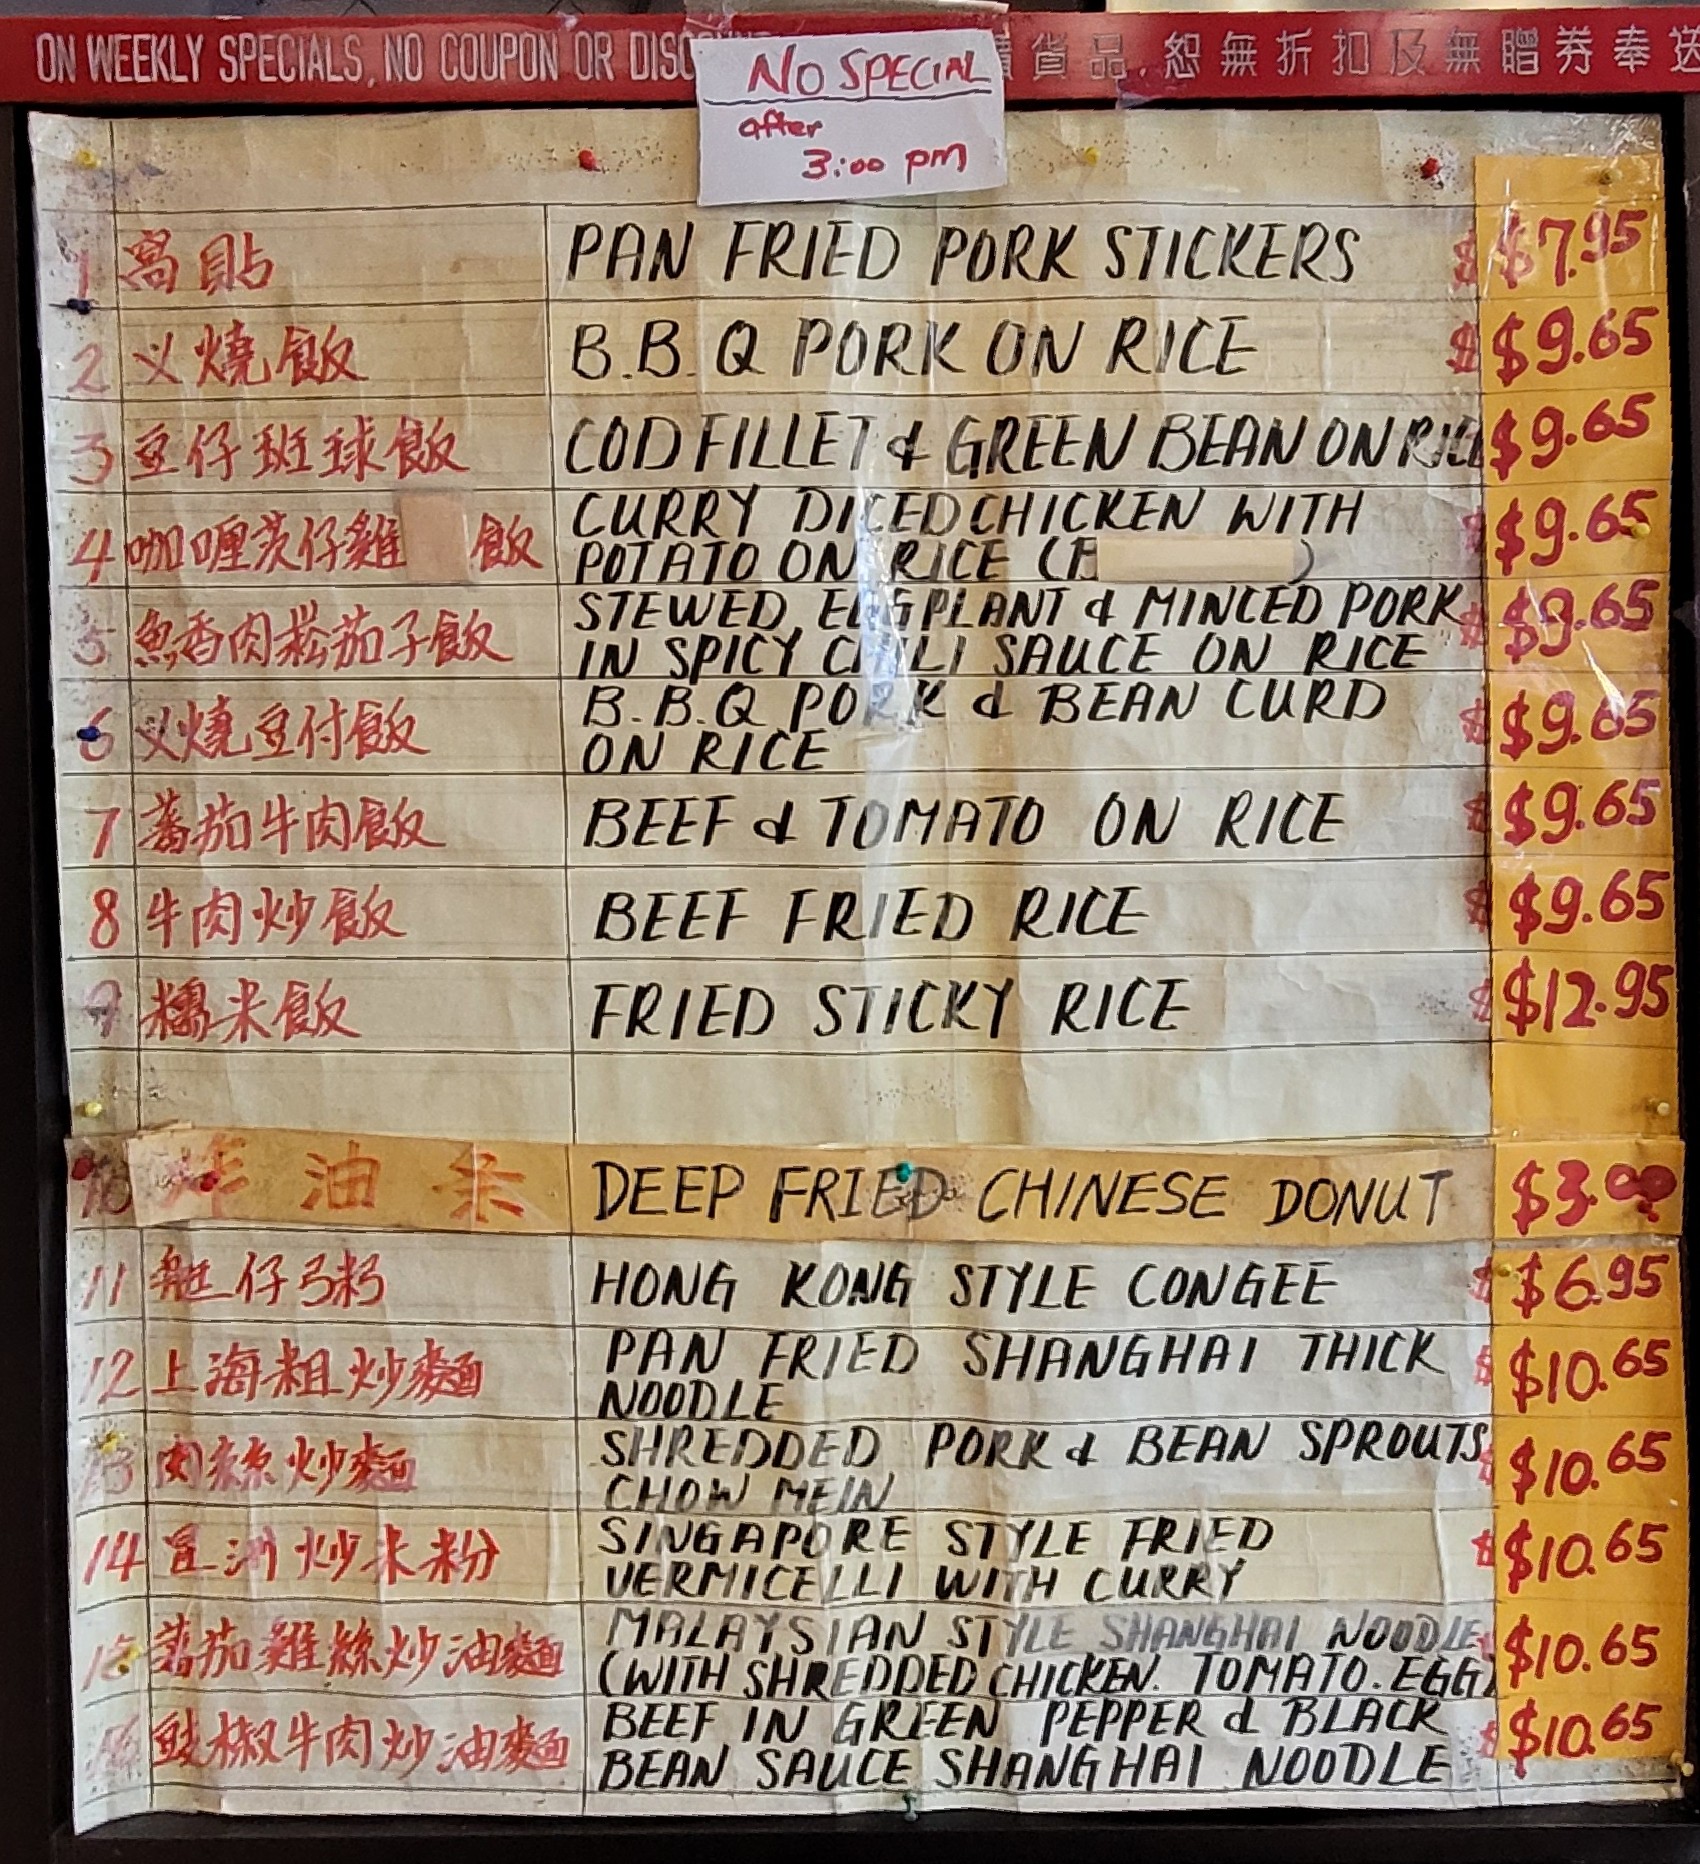 ON WEEKLY SPECIALS, NO COUPON OR 貨品,恕無折扣及無贈券奉送
NO SPECIAL
after
3:00 pm
1 窩貼 PAN FRIED PORK STICKERS $7.95
2 义燒飯 B.B.Q PORK ON RICE $9.65
3 豆仔班球飯 COD FILLET & GREEN BEAN ON RICE $9.65
4 咖喱茨仔雞 飯 CURRY DICED CHICKEN WITH $9.65
POTATO ON RICE ( )
5 魚香肉崧茄子飯 STEWED EGGPLANT & MINCED PORK $9.65
IN SPICY CHILI SAUCE ON RICE
6 义燒豆付飯 B.B.Q PORK & BEAN CURD $9.65
ON RICE
7 蕃茄牛肉飯 BEEF & TOMATO ON RICE $9.65
8 牛肉炒飯 BEEF FRIED RICE $9.65
9 糯米飯 FRIED STICKY RICE $12.95
10 炸油条 DEEP FRIED CHINESE DONUT $3.00
11 艇仔弓粥 HONG KONG STYLE CONGEE $6.95
12 上海粗炒麵 PAN FRIED SHANGHAI THICK $10.65
NOODLE
13 肉絲炒麵 SHREDDED PORK & BEAN SPROUTS $10.65
CHOW MEIN
14 星洲炒米粉 SINGAPORE STYLE FRIED $10.65
VERMICELLI WITH CURRY
15 蕃茄雞絲炒油麵 MALAYSIAN STYLE SHANGHAI NOODLE $10.65
(WITH SHREDDED CHICKEN. TOMATO. EGG)
16 豉椒牛肉炒油麵 BEEF IN GREEN PEPPER & BLACK $10.65
BEAN SAUCE SHANGHAI NOODLE